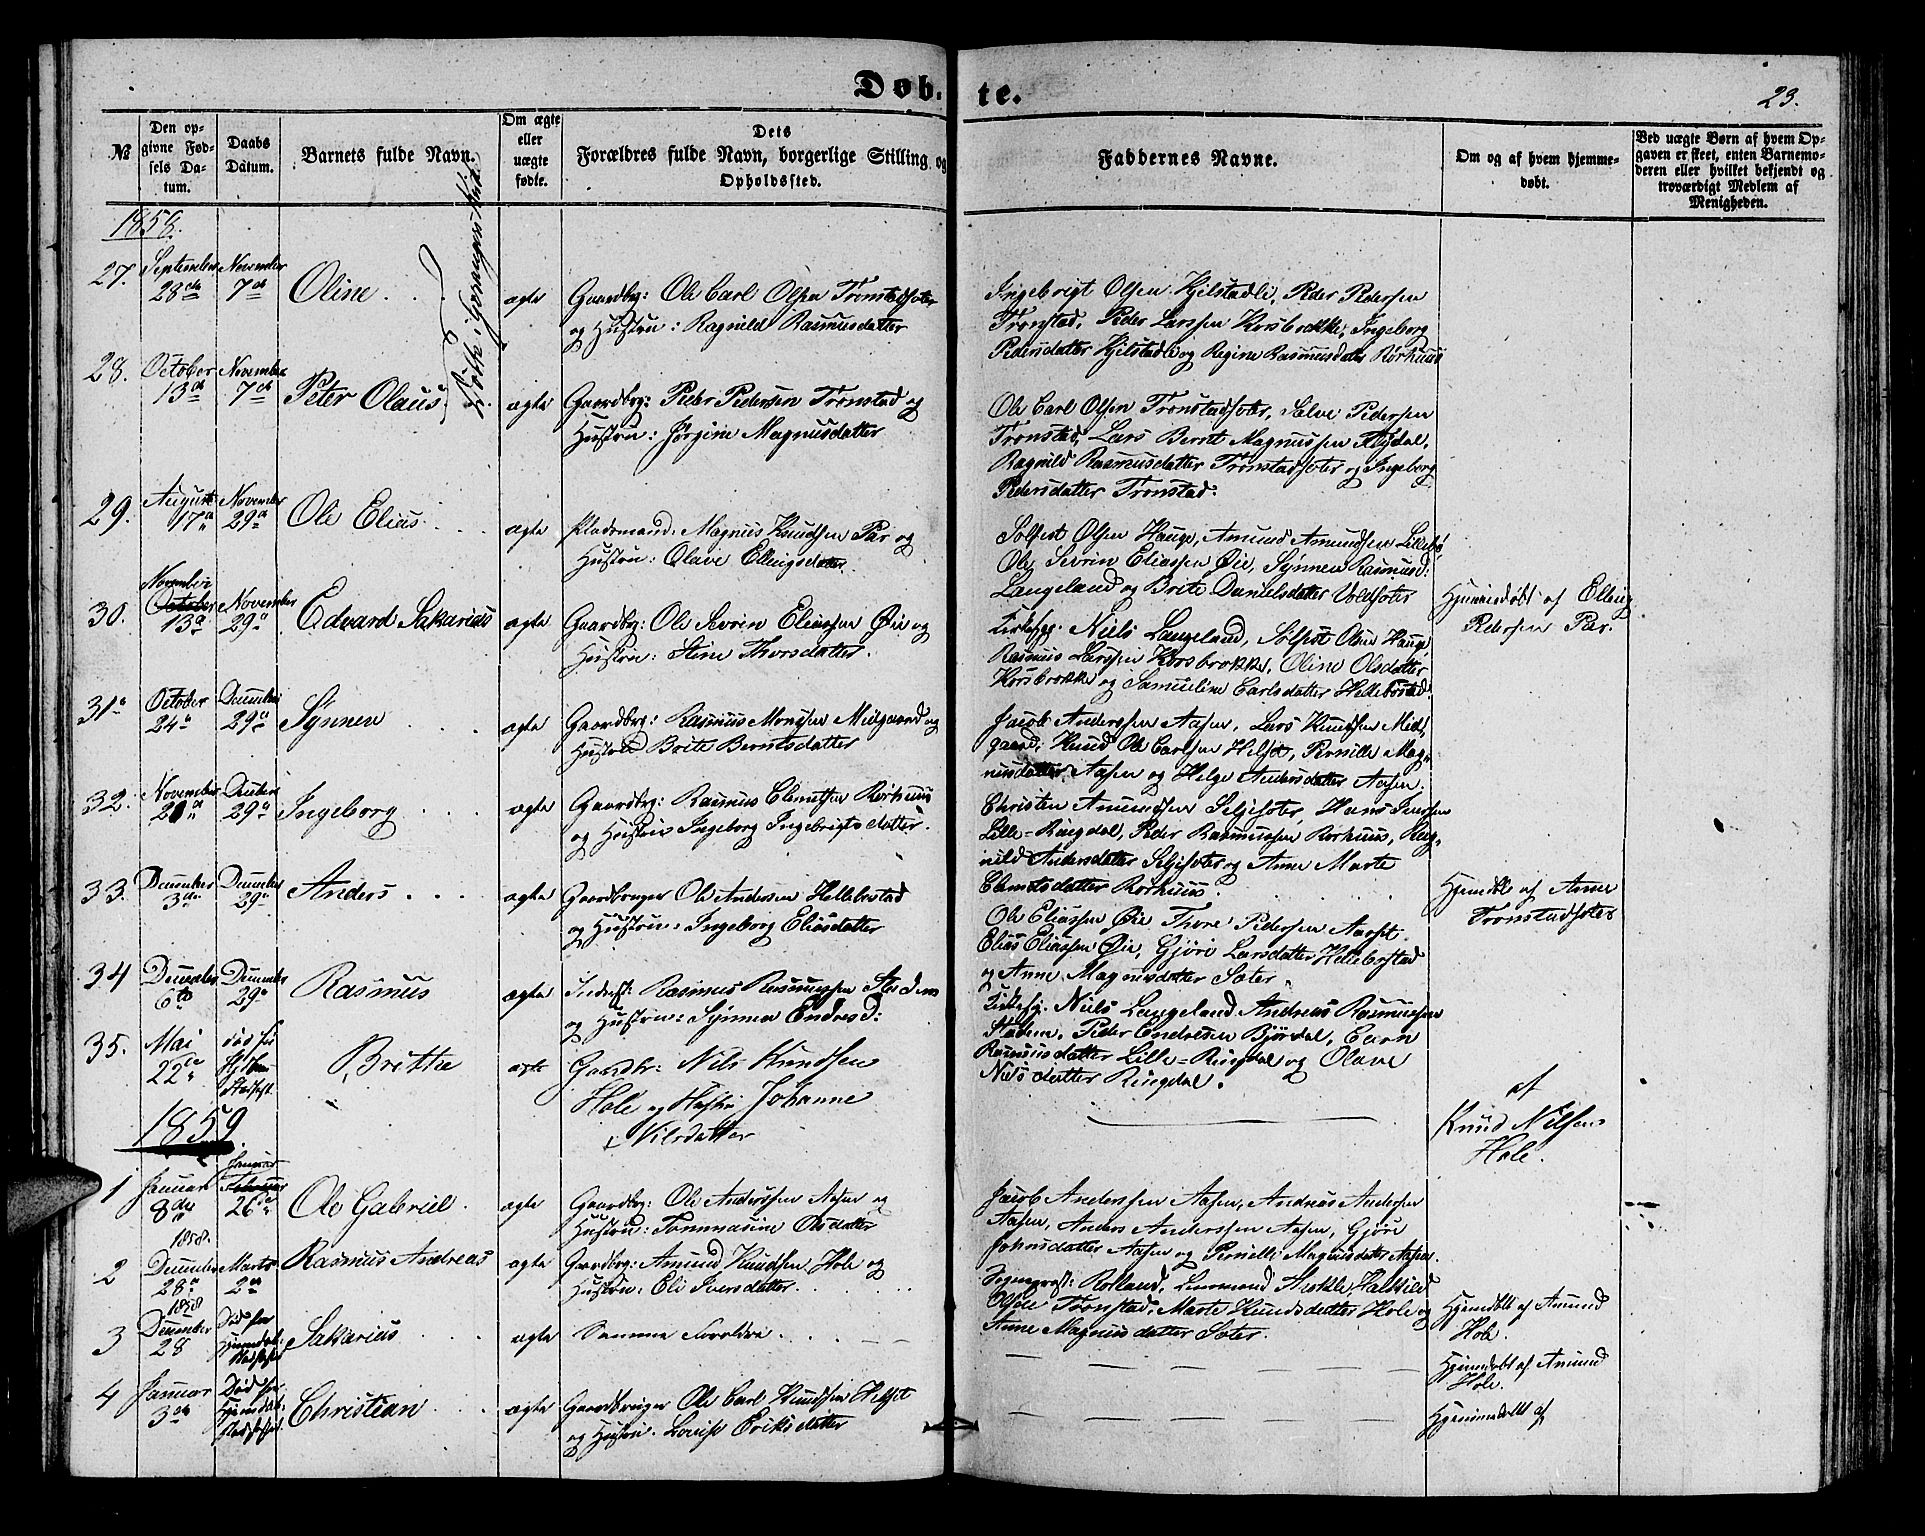 Døb-te.
23.
№
Den opgivne Fødsels Datum.
Daabs Datum.
Barnets fulde Navn.
Om ægte eller uægte fødte.
Dets Forældres fulde Navn, borgerlige Stilling og Opholdssted.
Faddernes Navne.
Om og af hvem hjemmedøbt.
Ved uægte Børn af hvem Opgaven er skeet, enten Barnemoderen eller hvilket bekjendt og troværdigt Medlem af Menigheden.
1858.
27. September 28de November 7de Oline ægte Gaardbg: Ole Carl Olsen Tronstadsæter
og Hustru: Ragnild Rasmusdatter
Ingebrigt Olsen Kjelstadli, Peder Pedersen
Tronstad, Peder Larssen Korsbrække, Ingeborg
Pedersdatter Kjelstadli og Regine Rasmusdatter Rørhuus
28. October 13de November 7de Peter Olaus ægte Gaardbg: Peder Pedersen Tronstad og
Hustru: Jørgine Magnusdatter
Ole Carl Olsen Tronstadsæter, Salve Pedersen
Tronstad, Lars Bernt Magnussen
Ragnild Rasmusdatter Tronstadsæter og Ingeborg
Pedersdatter Tronstad.
29. August 17de November 29de Ole Elias ægte Pladsmand: Magnus Knudsen Par og
Hustru: Olave Ellingsdatter.
Solfest Olsen Hauge, Amund Amundsen Lillebø,
Ole Sevrin Eliassen Øie, Synnev Rasmusd:
Langeland og Brite Danielsdatter Voldsæter
30. November October 13de November 29de Edvard Sakarias ægte Gaardbg: Ole Sevrin Eliassen Øie og
Hustru: Stine Thorsdatter.
Kirkesg. Niels Langeland, Solfest Olsen Hauge,
Rasmus Larssen Korsbrække, Oline Olsdatter
Korsbrække og Samueline Carlsdatter Hellebostad
Hjemmedøbt af Elling
Pedersen Par.
31. October 24de December 29de Synnev ægte Gaardbg: Rasmus Monssen Midgaard og
Hustru Brite Berntsdatter
Jacob Anderssen Aasen, Lars Knudsen Mid-
gaard, Knud Ole Carlsen Helset, Pernille Mag-
nusdatter Aasen og Helge Andersdatter Aasen.
32. November December 29de Ingeborg ægte Gaardbg: Rasmus Clemetsen Rørhuus
og Hustru Ingeborg Ingebrigtsdatter.
Christen Amundsen Seljesæter, Hans Jenssen
Lille-Ringdal, Peder Rasmussen Rørhuus, Rag-
nild Andersdatter Seljesæter og Anne Marte
Clemetsdatter Rørhuus.
33. December 3die December 29de Anders ægte Gaardbruger Ole Andersen Hellebostad
og Hustru: Ingeborg Eliasdatter
Ole Eliassen Øie, Thore Pedersen Aarset
Elias Eliassen Øie, Gjøri Larsdatter Hellebostad
og Anne Magnusdatter Sæter.
Hjemdøbt af Anne
Tronstadsæter
34 December 6te December 29de Rasmus ægte Inderst: Rasmus Rasmussen Stadem
og Hustru: Synnev Endresd:
Kirkesg. Niels Langeland, Andreas Rasmussen
Stadem, Peder Endresen Bjørdal, Carn
Rasmusdatter Lille-Ringdal og Olave
Nielsdatter Ringdal.
35. Mai 22de død før Stadfest Britte ægte Gaardbr: Nils Knudsen
Hole og Hustru Johanne
Nilsdatter
af
Knud Nilsen
Hole.
1859.
1 Januar 8de Januar Februar 26de Ole Gabriel ægte Gaardbg: Ole Anderssen Aasen og
Hustru: Tommasine Olsdatter
Jacob Anderssen Aasen, Andreas Andersen
Aasen, Anders Anderssen Aasen, Gjøri
Johnsdatter Aasen og Pernille Magnusdatter Aasen.
2 1858. December 28de Marts 2de Rasmus Andreas ægte Gaardbg: Amund Knudsen Hole og
Hustru: Eli Iversdatter.
Sogneprest: Rolland, Lensmand
Olsen Tronstad, Marte Knudsdatter Hole og
Anne Magnusdatter Sæter.
Hjemdøbt af Amund
Hole.
3 1858 December 28 Død før Hjemdøb: Stadfestet Sakarias ægte Samme Forældre
Hjemdøbt af Amund
Hole.
4 Januar 3de Død før Hjemdøb: Stadfestet Christian ægte Gaardbruger Ole Carl Knudsen Helset
og Hustru: Lovise Eriksdatter
Hjemmedøbt af
Døbt i Geirangers Kirke.